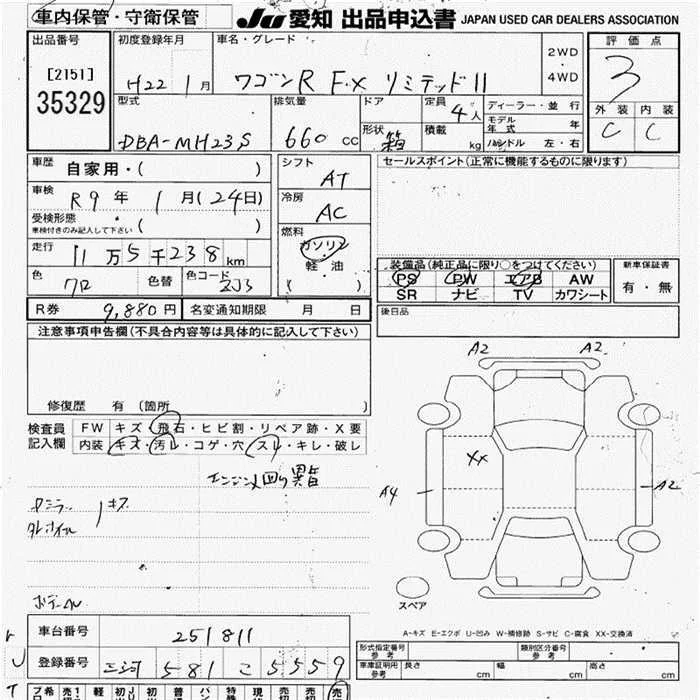 車内保管・守衛保管
JU 愛知 出品申込書 JAPAN USED CAR DEALERS ASSOCIATION
出品番号 初度登録年月 車名・グレード 評価点
[2151]
35329
H22 1月 ワゴンR F・X リミテッドII
2WD
・
4WD
3
型式 排気量 ドア 定員 4人 ディーラー・並行 外装 内装
DBA-MH23S 660cc 形状 箱 積載 kg モデル年式 年 C C
ハンドル 左・右
車歴 自家用・( ) シフト AT セールスポイント(正常に機能するものに限ります)
車検 R9年 1月(24日) 冷房 AC
受検形態
車検付きのみ記入して下さい ( )
燃料 ガソリン
軽・油
( )
走行 11万5千238km
色 色替 色コード ZJ3
装備品(純正品に限り○をつけてください) 新車保証書
PS PW エアB AW 有・無
SR ナビ TV カワシート
R券 9,880円 名変通知期限 月 日 後日品
注意事項申告欄(不具合内容等は具体的に記入して下さい)
修復歴 有(箇所
検査員記入欄
FW キズ・飛石・ヒビ割・リペア跡・X要
内装 キズ・汚レ・コゲ・穴・スレ・キレ・破レ
エンジン回り異音
キズ
A2 A2
XX
A4 A2
スペア
A-キズ E-エクボ U-凹み W-補修跡 S-サビ C-腐食 XX-交換済
車台番号 251811
登録番号 三河 581 こ 5559
形式指定番号 参考 類別区分番号 参考
車庫証明用 参考 長さ cm 幅 cm 高さ cm